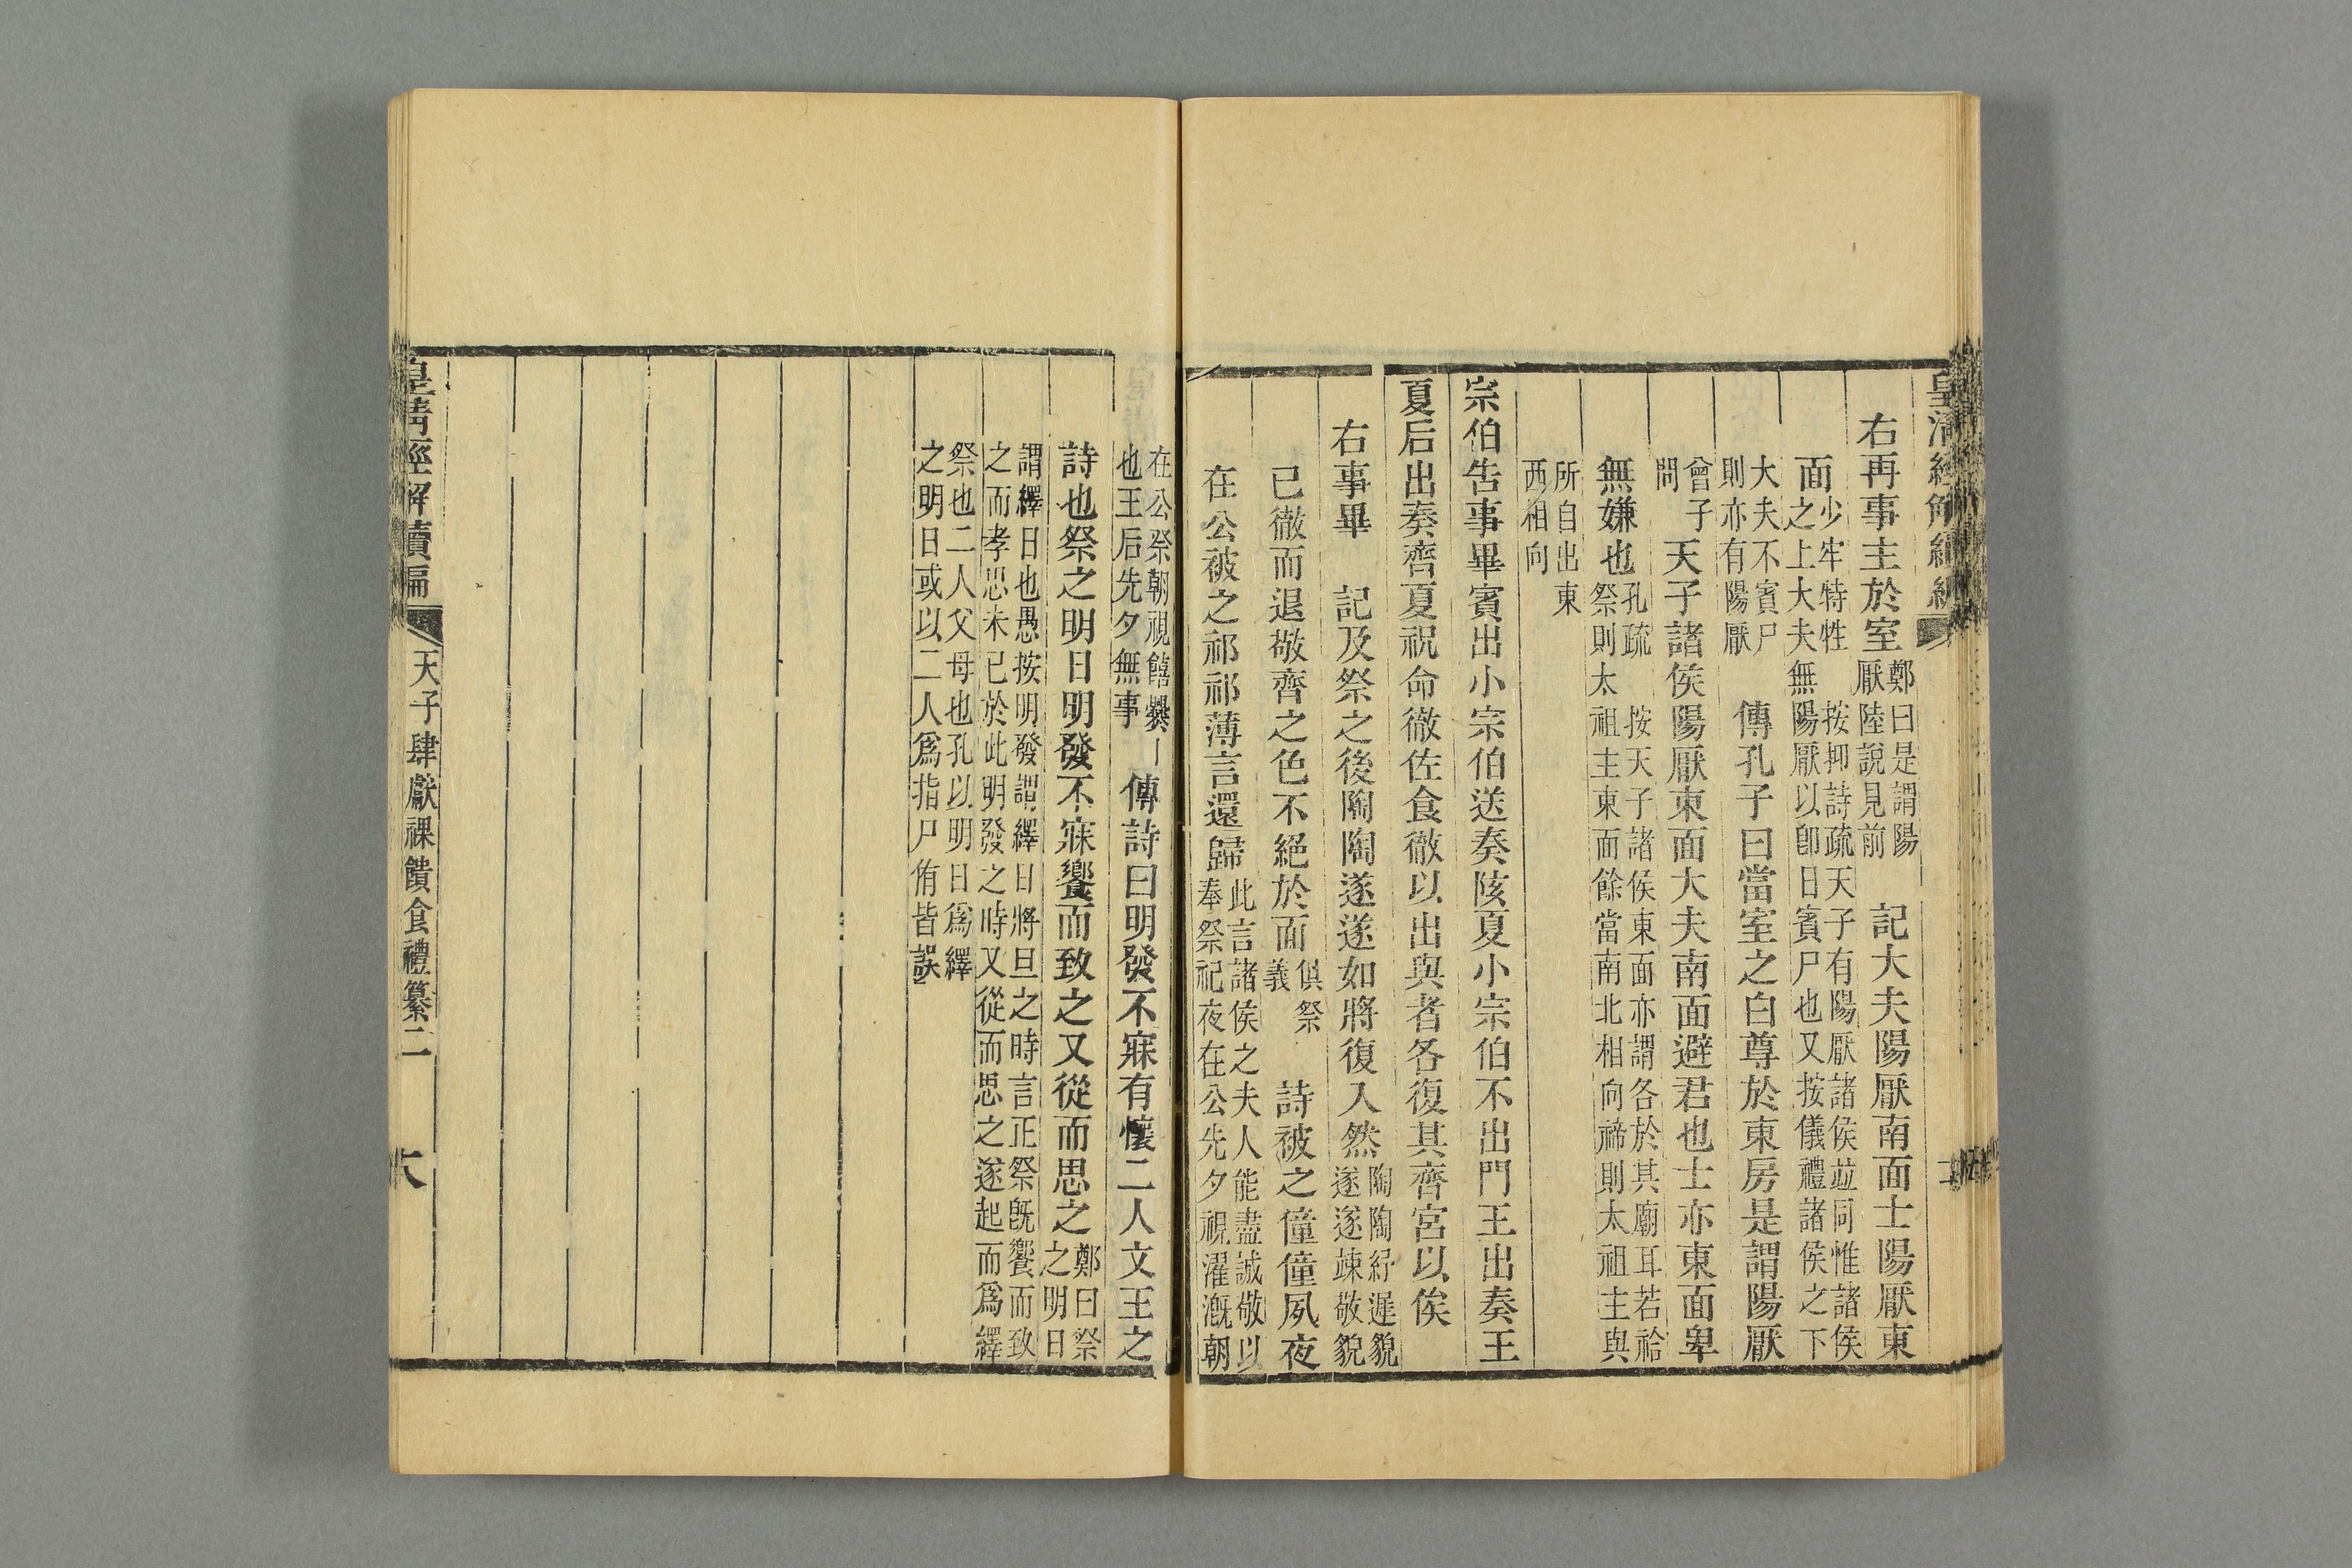 皇清經解續編
右再事主於室鄭曰是謂陽厭陸説見前　記大夫陽厭南面士陽厭東
面少牢特牲之上大夫無　按抑詩疏天子有陽厭諸侯竝同惟諸侯陽厭以卽日賓尸也又按儀禮諸侯之下
大夫不賓尸則亦有陽厭　傳孔子曰當室之白尊於東房是謂陽厭
曾子問　天子諸侯陽厭東面大夫南面避君也士亦東面卑
無嫌也孔疏祭則太　按天子諸侯東面亦謂各於其廟耳若祫祖主東面餘當南北相向禘則太祖主與
所自出東西相向
宗伯告事畢賓出小宗伯送奏陔夏小宗伯不出門王出奏王
夏后出奏齊夏祝命徹佐食徹以出與者各復其齊宮以俟
右事畢　記及祭之後陶陶遂遂如將復入然陶陶紓遲貌遂遂疎敬貌
已徹而退敬齊之色不絕於面俱祭義　詩被之僮僮夙夜
在公被之祁祁薄言還歸此言諸侯之夫人能盡誠敬以奉祭祀夜在公先夕視濯漑朝
在公祭朝視饎爨也王后先夕無事　傳詩曰明發不寐有懷二人文王之
詩也祭之明日明發不寐饗而致之又從而思之鄭曰祭之明日
謂繹日也愚按明發謂繹日將旦之時言正祭旣饗而致之而孝思未已於此明發之時又從而思之遂起而爲繹
祭也二人父母也孔以明日爲繹之明日或以二人爲指尸侑皆誤
皇清經解續編
天子肆獻祼饋食禮纂二